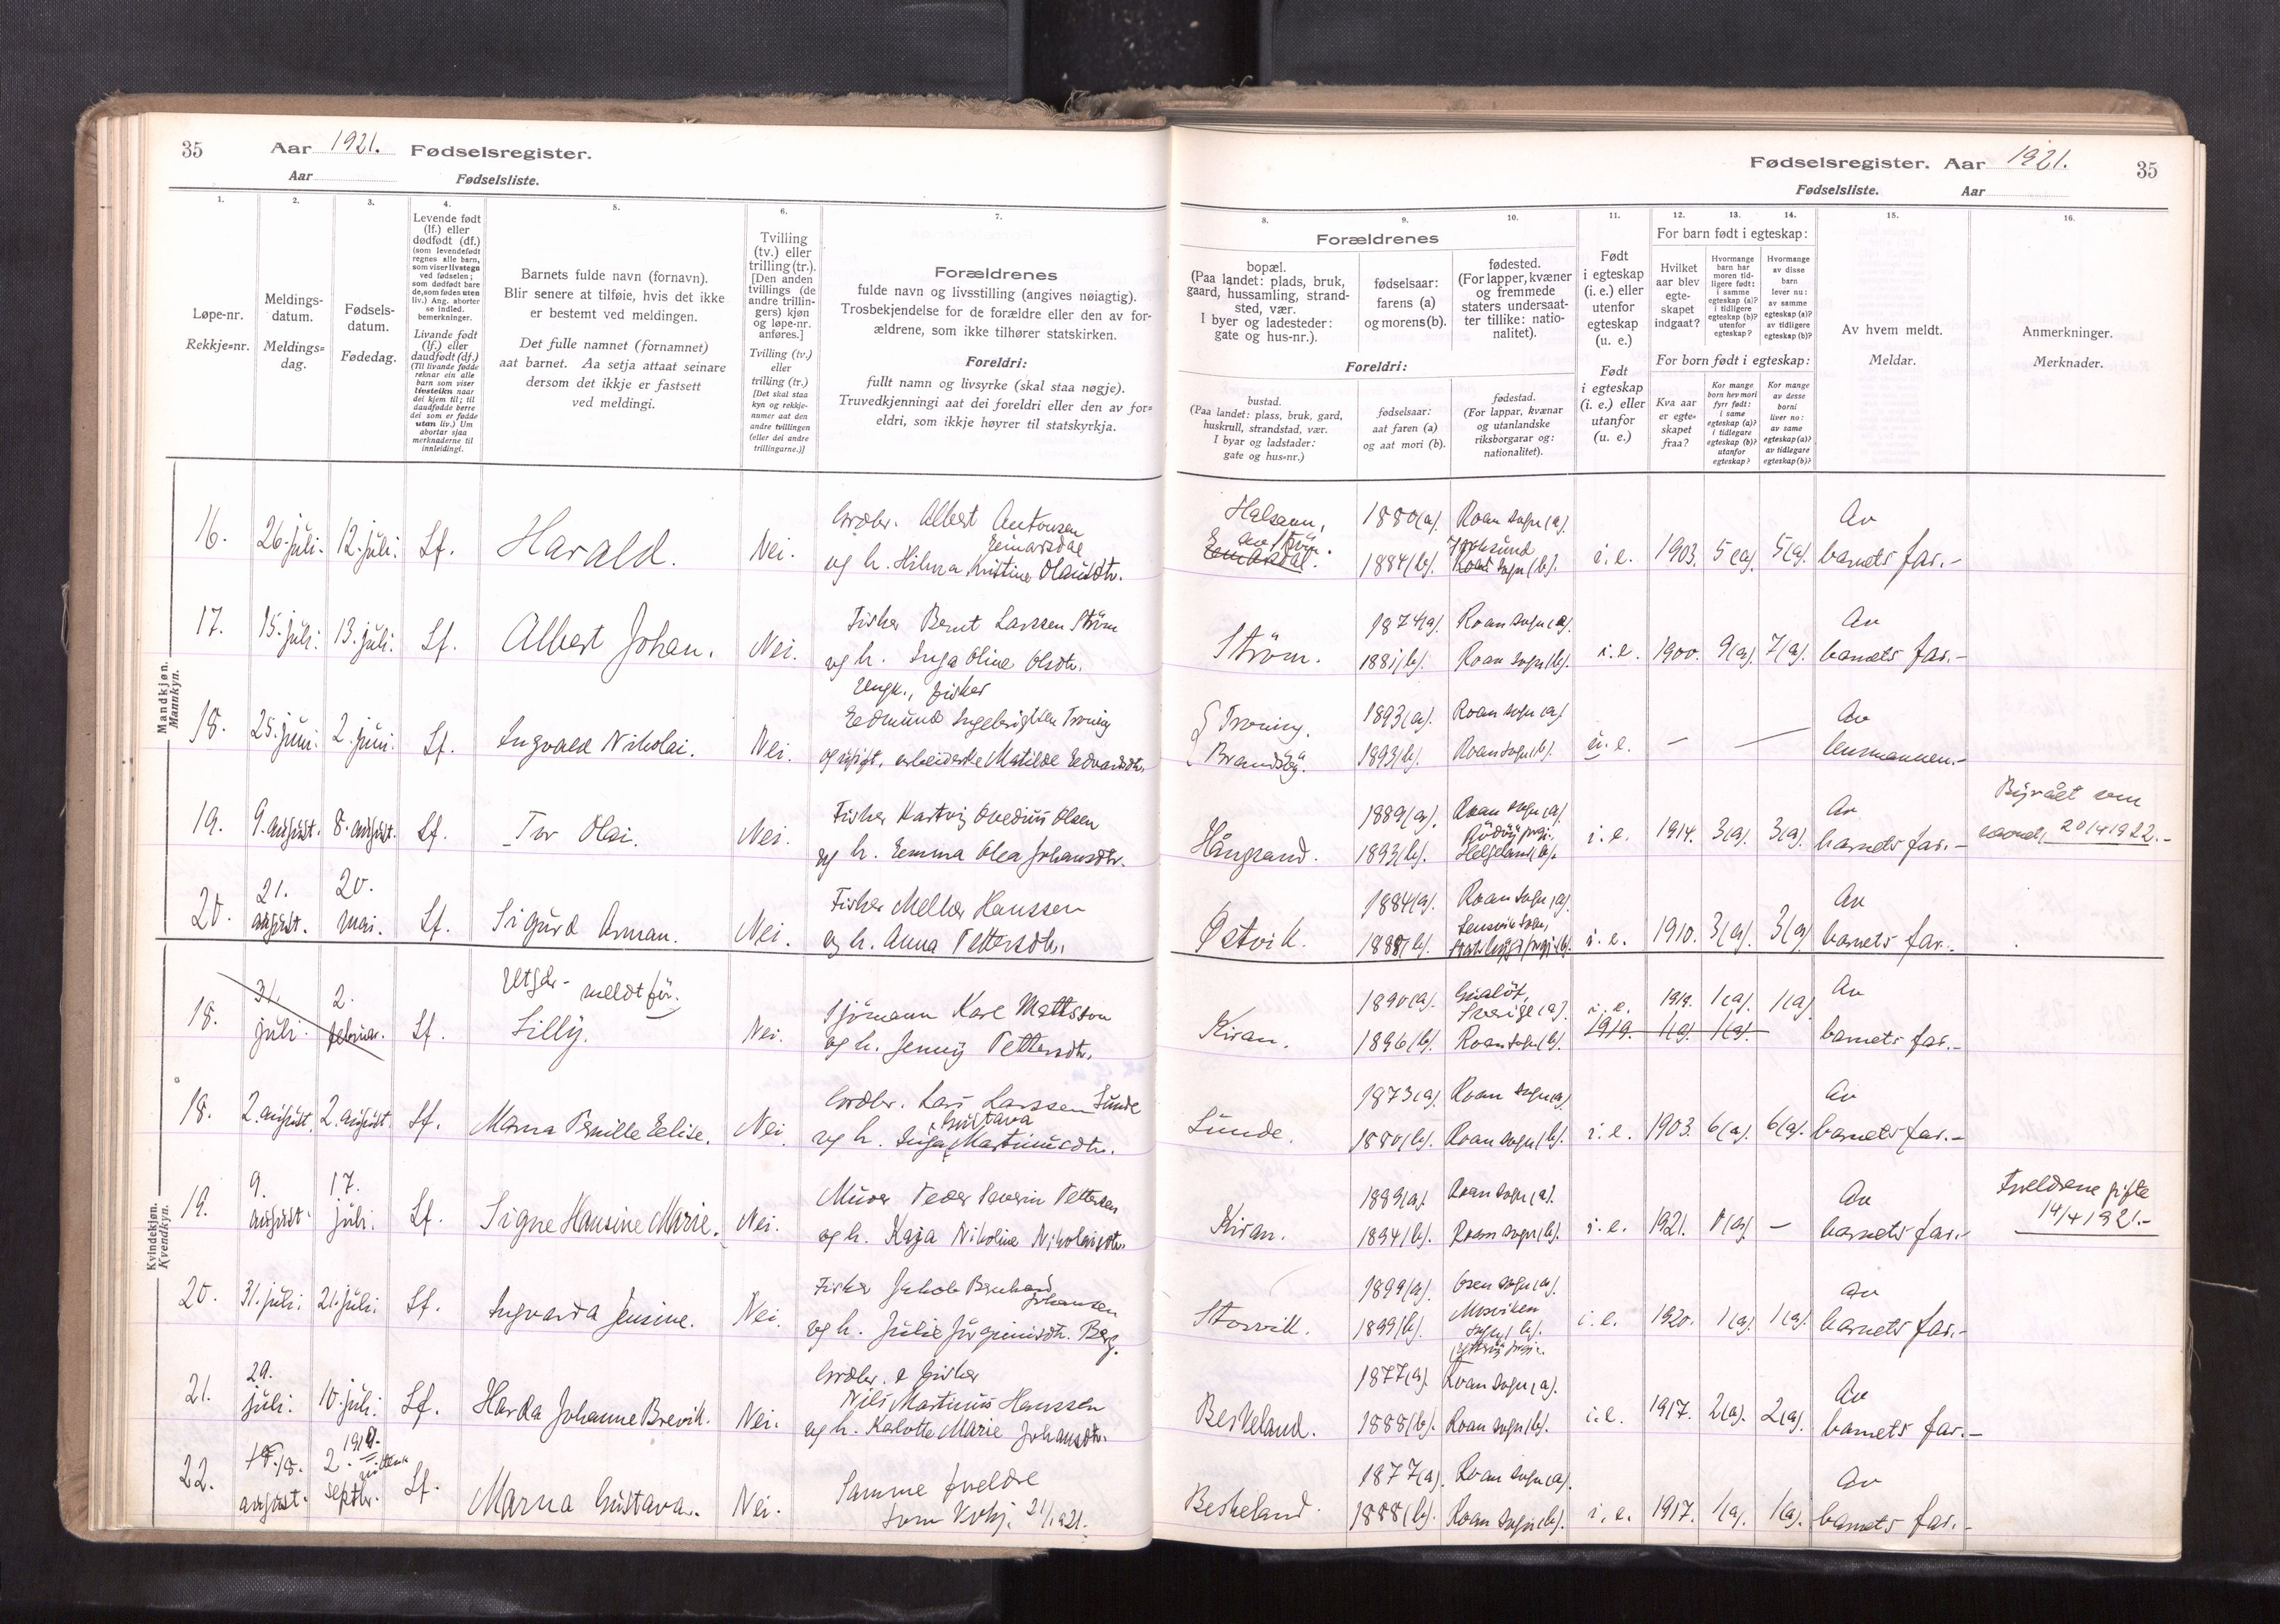 35 Aar 1921. Fødselsregister.
Aar Fødselsliste.
Fødselsregister. Aar 1921. 35
Fødselsliste. Aar
1. 2. 3. 4. 5. 6. 7.
Løpe-nr.
Rekkje=nr.
Meldings-
datum.
Meldings=
dag.
Fødsels-
datum.
Fødedag.
Levende født
(lf.) eller
dødfødt (df.)
(som levendefødt
regnes alle barn,
som viser livstegn
ved fødselen;
som dødfødt bare
de, som fødes uten
liv.) Ang. aborter
se indled.
bemerkninger.
Livande født
(lf.) eller
daudfødt (df.)
(Til livande fødde
reknar ein alle
barn som viser
livsteikn naar
dei kjem til; til
daudfødde berre
dei som er fødde
utan liv.) Um
abortar sjaa
merknaderne til
innleidingi.
Barnets fulde navn (fornavn).
Blir senere at tilføie, hvis det ikke
er bestemt ved meldingen.
Det fulle namnet (fornamnet)
aat barnet. Aa setja attaat seinare
dersom det ikkje er fastsett
ved meldingi.
Tvilling
(tv.) eller
trilling (tr.).
[Den anden
tvillings (de
andre trillin-
gers) kjøn
og løpe-nr.
anføres.]
Tvilling (tv.)
eller
trilling (tr.)
[Det skal staa
kyn og rekkje-
nummer aat den
andre tvillingen
(eller dei andre
trillingarne.)]
Forældrenes
fulde navn og livsstilling (angives nøiagtig).
Trosbekjendelse for de forældre eller den av for-
ældrene, som ikke tilhører statskirken.
Foreldri:
fullt namn og livsyrke (skal staa nøgje).
Truvedkjenningi aat dei foreldri eller den av for=
eldri, som ikkje høyrer til statskyrkja.
8. 9. 10. 11. 12. 13. 14. 15. 16.
Forældrenes
bopæl.
(Paa landet: plads, bruk,
gaard, hussamling, strand-
sted, vær.
I byer og ladesteder:
gate og hus-nr.).
fødselsaar:
farens (a)
og morens (b).
fødested.
(For lapper, kvæner
og fremmede
staters undersaat-
ter tillike: natio-
nalitet).
Foreldri:
bustad.
(Paa landet: plass, bruk, gard,
huskrull, strandstad, vær.
I byar og ladstader:
gate og hus=nr.)
fødselsaar:
aat faren (a)
og aat mori (b).
fødestad.
(For lappar, kvænar
og utanlandske
riksborgarar og:
nationalitet).
Født
i egteskap
(i. e.) eller
utenfor
egteskap
(u. e.)
Født
i egteskap
(i. e.) eller
utanfor
(u. e.)
For barn født i egteskap:
Hvilket
aar blev
egte-
skapet
indgaat?
Hvormange
barn har
moren tid-
ligere født:
i samme
egteskap (a)?
i tidligere
egteskap (b)?
utenfor
egteskap?
Hvormange
av disse
barn
lever nu:
av samme
egteskap (a)?
av tidligere
egteskap (b)?
For born født i egteskap:
Kva aar
er egte-
skapet
fraa?
Kor mange
born hev mori
fyrr født:
i same
egteskap (a)?
i tidlegare
egteskap (b)?
utanfor
egteskap?
Kor mange
av desse
borni
liver no:
av same
egteskap (a)?
av tidlegare
egteskap (b)?
Av hvem meldt.
Meldar.
Anmerkninger.
Merknader.
Mandkjøn.
Mannkyn.
16. 26. juli. 12. juli. Lf. Harald. Nei. Grdbr. Albert Antonsen
Einarsdal
og h. Hilma Kristine Olausdtr.
1880(a). Roan sogn (a).
1884(b). sogn (b). i. e. 1903. 5(a). 5(a). Av
barnets far.-
17. 15. juli. 13. juli. Lf. Albert Johan. Nei. Fisker Bernt Larssen Strøm
og h. Inga Oline Olsdtr.
Strøm. 1874(a). Roan sogn (a).
1881(b). Roan sogn (b). i. e. 1900. 9(a). 7(a). Av
barnets far.-
18. 25. juni. 2. juni. Lf. Ingvald Nikolai. Nei. Ungk., fisker
Edmund Ingebrigtsen Troning
og ugift, arbeiderske Matilde Edvardsdtr.
Troning. 1893(a). Roan sogn (a)
1893(b). Roan sogn (b). u. e. — — Av
lensmannen.-
19. 9. august. 8. august. Lf. Tor Olai. Nei. Fisker Hartvig Ovedius Olsen
og h. Emma Olea Johansdtr.
1889(a). Roan sogn (a)
1893(b). Helgeland (b). i. e. 1914. 3(a). 3(a). Av
barnets far.-
20/4 1922.-
20. 21.
august. 20.
mai. Lf. Sigurd Arman. Nei. Fisker Meller Hanssen
og h. Anna Pettersdtr.
Østvik. 1884(a). Roan sogn (a).
1888(b). i. e. 1910. 3(a). 3(a) Av
barnets far.-
Kvindekjøn.
Kvendkyn.
18. 31.
juli. 2.
februar. Lf. Utgår - meldt før.
Lilly. Nei. Sjømann Karl Mattsson
og h. Jenny Pettersdtr.
Kiran. 1890(a). Sverige (a).
1896(b). Roan sogn (b). i. e. 1919. 1(a). 1(a)
1919. 1(a). 1(a). Av
barnets far.-
18. 2. august. 2. august. Lf. Marna Pernille Elise. Nei. Grdbr. Lars Larssen Sunde
Gustava
og h. Inga Martinusdtr.
Sunde. 1873(a). Roan sogn (a)
1880(b). Roan sogn (b). i. e. 1903. 6(a). 6(a). Av
barnets far.-
19. 9.
august. 17.
juli. Lf. Signe Hansine Marie. Nei. Murer Peder Severin Pettersen
og h. Kaja Nikoline Nikolaisdtr.
Kiran. 1889(a). Roan sogn (a).
1894(b). Roan sogn (b). i. e. 1921. — Av
barnets far.-
Foreldrene gifte
14/4 1921.-
20. 31. juli. 21. juli. Lf. Ingvarda Jensine. Nei. Fisker Jakob Bernhard
Johansen
og h. Julie Jørginusdtr. Berg.
Storvik. 1899(a). Osen sogn (a).
1899(b). Mosviken
sogn (b). i. e. 1920. 1(a). 1(a). Av
barnets far.-
21. 29.
juli. 10. juli. Lf. Harda Johanne Brevik. Nei. Grdbr. & fisker
Nils Martinus Hanssen
og h. Kalotte Marie Johansdtr.
Beskeland. 1877(a). Roan sogn (a).
1888(b). Roan sogn (b). i. e. 1917. 2(a). 2(a). Av
barnets far.-
22. 18.
august. 2.
septbr. Lf. Marna Gustava. Nei. Samme foreldre
som
Beskeland. 1877(a). Roan sogn (a).
1888(b). Roan sogn (b). i. e. 1917. 1(a). 1(a). Av
barnets far.-